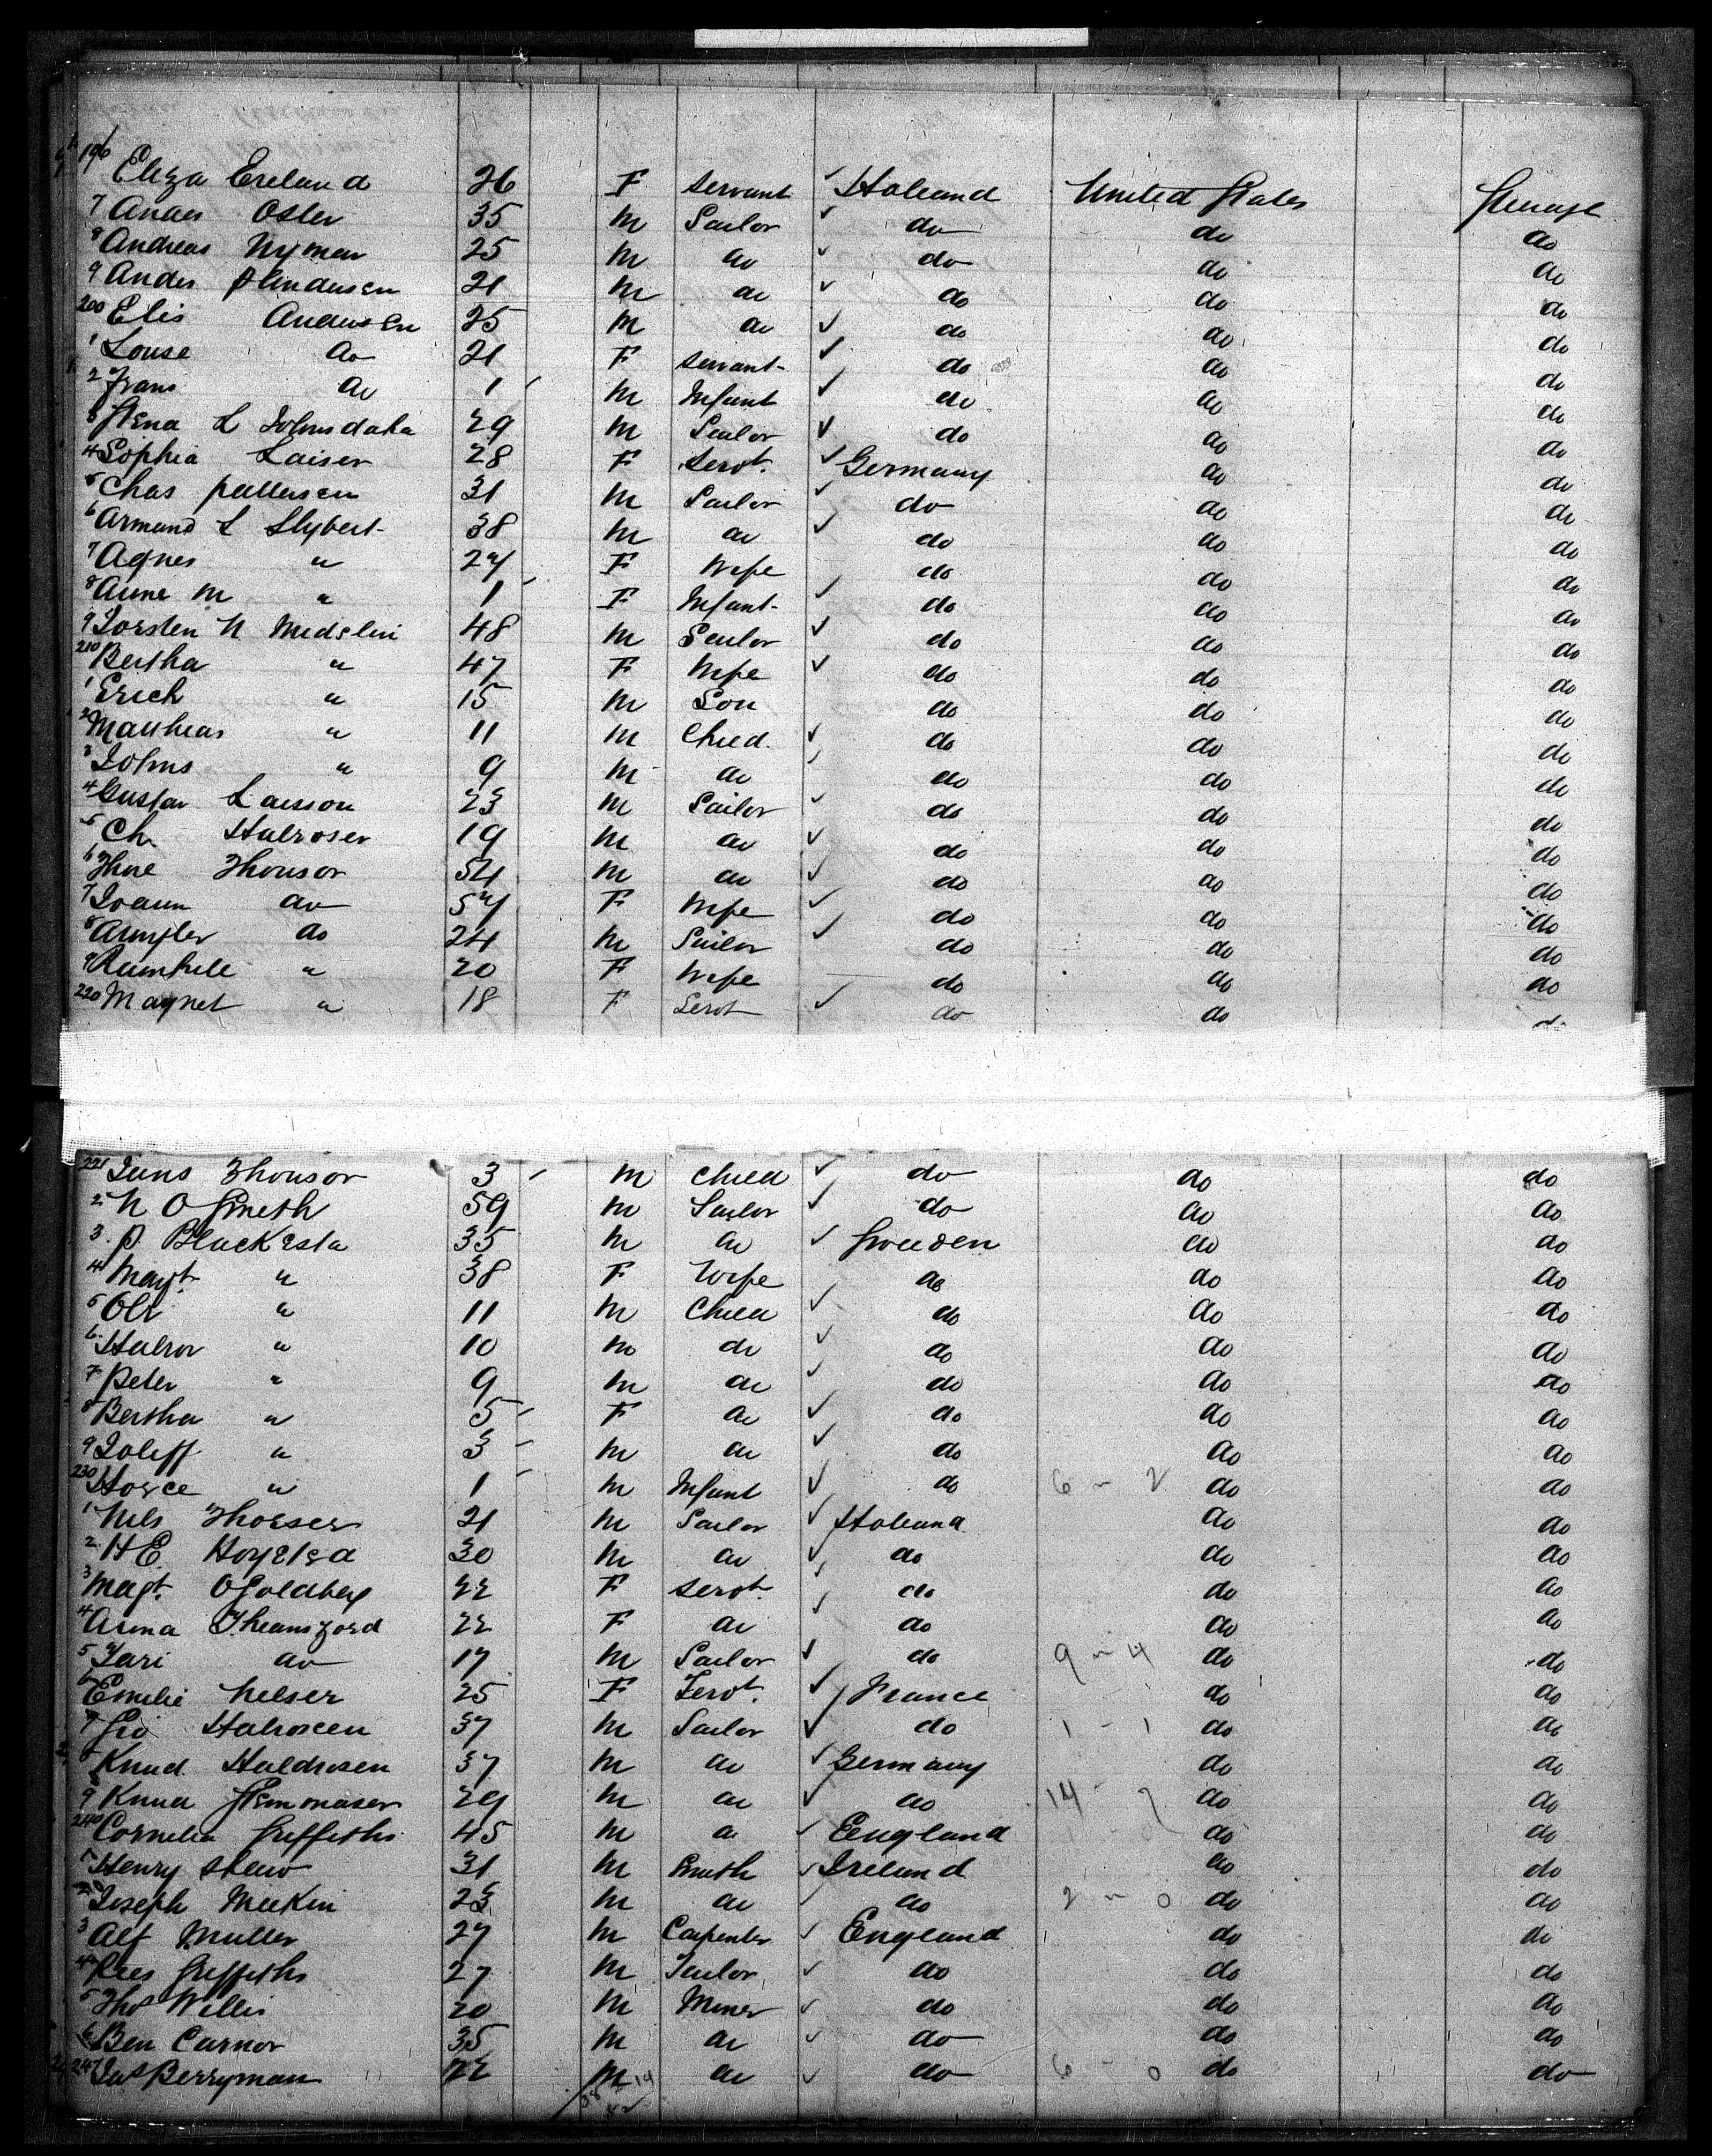 196 Eliza Ereland 26 F servant Holland United States Steerage
7 Anders Osler 35 M Sailor do do do
8 Andreas Nyman 25 M do do do do
9 Anders Andersen 21 M do do do do
200 Elis Andersen 25 M do do do do
1 Louse do 21 F servant do do do
2 Frans do 1 M Infant do do do
3 Stena L Johnsdaha 29 M Sailor do do do
4 Sophia Laiser 28 F Servt. Germany do do
5 Chas Pettersen 31 M Sailor do do do
6 Armand L Slybert 38 M do do do do
7 Agnes " 27 F Wife do do do
8 Anne M " 1 F Infant do do do
9 Torsten N Medslin 48 M Sailor do do do
210 Bertha " 47 F Wife do do do
1 Erich " 15 M Son do do do
2 Matthias " 11 M Child do do do
3 Johns " 9 M do do do do
4 Gustav Larsson 23 M Sailor do do do
5 Ch. Halvoser 19 M do do do do
6 Thore Thonsor 54 M do do do do
7 Joann do 57 F Wife do do do
8 do 24 M Sailor do do do
9 " 20 F Wife do do do
220 Magnet " 18 F Servt do do do
221 Jans Thonsor 3 M Child do do do
2 N O Smeth 59 M Sailor do do do
3 P. Blackesta 35 M do Sweden do do
4 Magt " 38 F Wife do do do
5 Ole " 11 M Child do do do
6 Halvor " 10 M do do do do
7 Peter " 9 M do do do do
8 Bertha " 5 F do do do do
9 Joleff " 3 M do do do do
230 " 1 M Infant do 6 - 2 do do
1 Nels Thorser 21 M Sailor Holland do do
2 H E Hoyelsd 30 M do do do do
3 Magt. OGoldberg 22 F servt. do do do
4 Anna 22 F do do do do
5 Kari do 17 M Sailor do 9 - 4 do do
6 Emelie Nelser 25 F Servt. France do do
7 Halvoseen 37 M Sailor do 1 - 1 do do
8 Knud Haldrosen 37 M do Germany do do
9 Knud Stemmaser 29 M do do 14 - 7 do do
240 Cornelia Griffiths 45 M do England do do
1 Henry Shaw 31 M Smith Ireland do do
2 Joseph Meekin 23 M do do 2 - 0 do do
3 Alf Muller 27 M Carpenter England do do
4 Rees Griffiths 27 M Tailor do do do
5 Thos Willis 20 M Miner do do do
6 Ben Carnor 35 M do do do do
247 Jas Berryman 22 M do do 6 - 0 do do
38 14
52